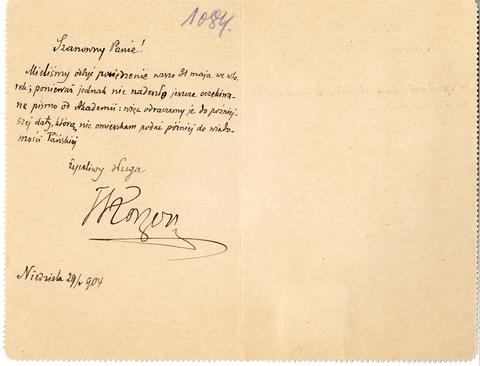 1084.
Szanowny Panie!
Mieliśmy odbyć posiedzenie nasze 31 maja we wto-
rek; ponieważ jednak nie nadeszło jeszcze oczekiwa-
ne pismo od Akademii: więc odraczamy je do późniejszej
szej daty, którą nie omieszkam podać później do wiado-
mości Pańskiej
Życzliwy sługa
TKorzon
Niedziela 29/V 904